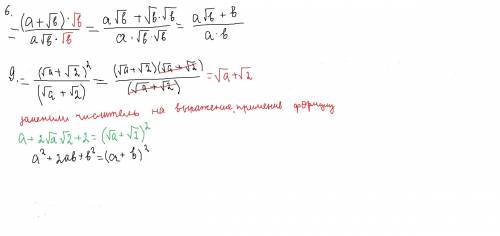 6.
= (a+√b)·√b / a√b·√b = a√b+√b·√b / a·√b·√b = a√b+b / a·b
9. = (√a+√2)² / (√a+√2) = (√a+√2)(√a+√2) / (√a+√2) = √a+√2
заменили числитель на выражение, применив формулу
a+2√a√2+2=(√a+√2)²
a²+2ab+b²=(a+b)²